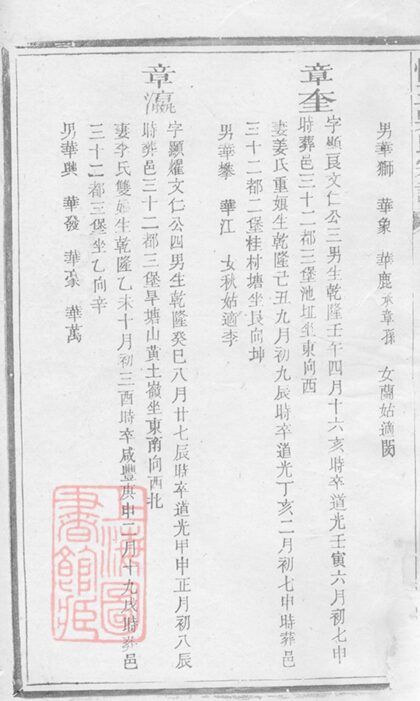 男華獅　華象　華鹿承章孫　女蘭姑適閔
章奎
字顯良文仁公三男生乾隆壬午四月十六亥時卒道光壬寅六月初七申
時葬邑三十二都三堡池坵坐東向西
妻姜氏重娘生乾隆己丑九月初九辰時卒道光丁亥二月初七申時葬邑
三十二都二堡桂村塘坐艮向坤
男華攀　華江　女秋姑適李
章
字顯燿文仁公四男生乾隆癸巳八月廿七辰時卒道光甲申正月初八辰
時葬邑三十二都三堡旱塘山黃土嶺坐東南向西北
妻李氏雙娘生乾隆乙未十月初三酉時卒咸豐庚申二月十九戌時葬邑
三十二都三堡坐乙向辛
男華興　華發　華彖　華萬
上海圖書館藏